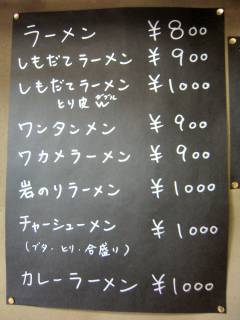 ラーメン ¥800
しもだてラーメン ¥900
しもだてラーメン ¥1000
とり皮 ダブル W
ワンタンメン ¥900
ワカメラーメン ¥900
岩のりラーメン ¥1000
チャーシューメン ¥1000
(ブタ・とり・合盛り)
カレーラーメン ¥1000